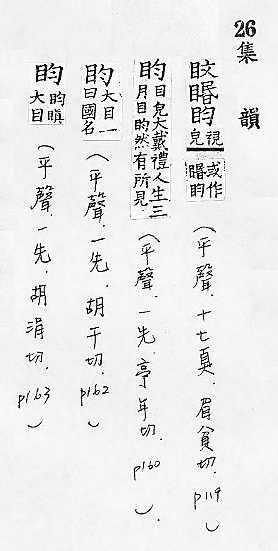 26 集韻
盿䁕盷 視皃 或作䁕盷 (平聲.十七真.眉貧切.p119)
盷 目皃大戴禮人生三月目盷然有所見 (平聲.一先.亭年切.p160).
盷 大目一曰國名 (平聲.一先.胡千切.p162)
盷 盷瞋大目 (平聲.一先.胡涓切.p163)